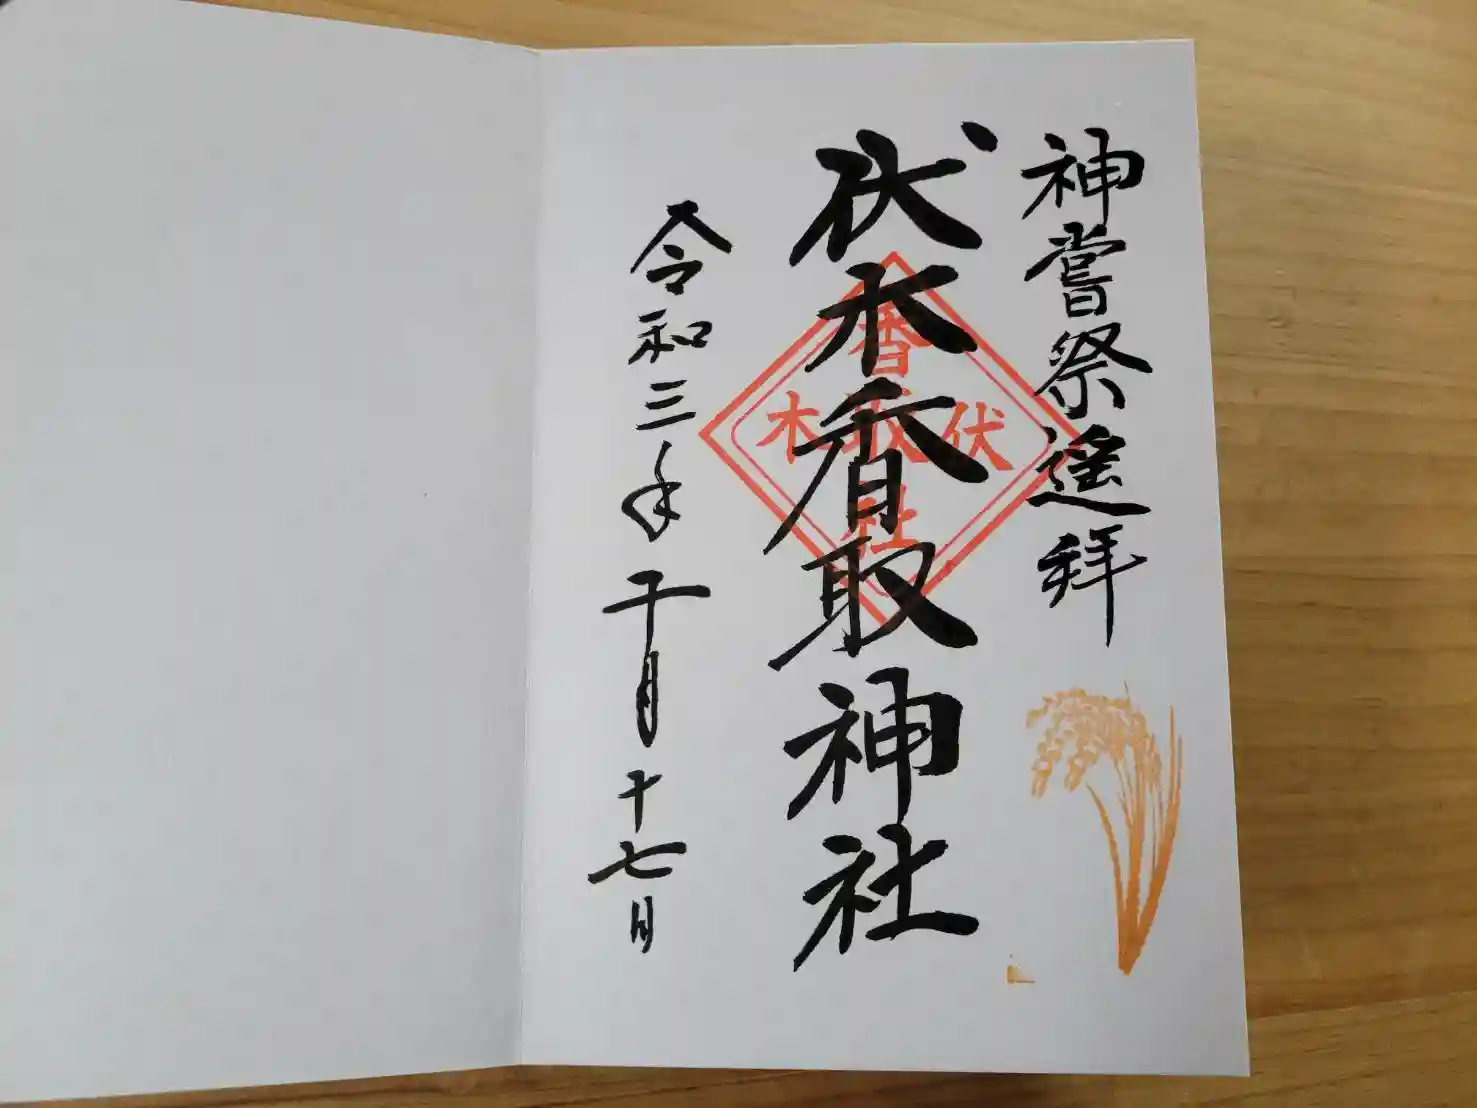 神嘗祭遥拝
伏木香取神社
令和三年十月十七日
香取社
伏木